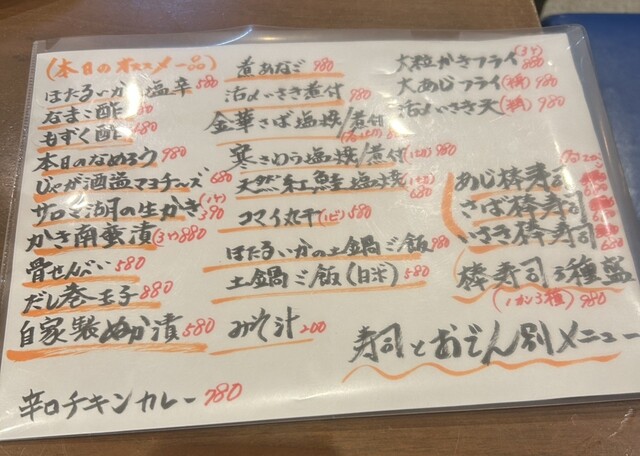 (本日のオススメ一品)
ほたるいか塩辛 580
なまこ酢
もずく酢
本日のなめろう 980
じゃが酒盗マヨチーズ 680
サロマ湖の生かき(1ヶ) 390
かき南蛮漬(3ヶ) 880
骨せんべい 580
だし巻玉子 880
自家製ぬか漬 580
辛口チキンカレー 780
煮あなご 980
活〆いさき煮付 980
金華さば塩焼/煮付
寒さわら塩焼/煮付(1切) 980
天然紅鮭塩焼(1切) 680
コマイ丸干(1ピ) 580
ほたるいかの土鍋ご飯 980
土鍋ご飯(白米) 580
みそ汁 200
大粒かきフライ(3ヶ) 880
大あじフライ 980
活〆いさき天 980
あじ棒寿司
さば棒寿司
いさき棒寿司
棒寿司3種盛
(1カン3種) 980
寿司とおでん別メニュー